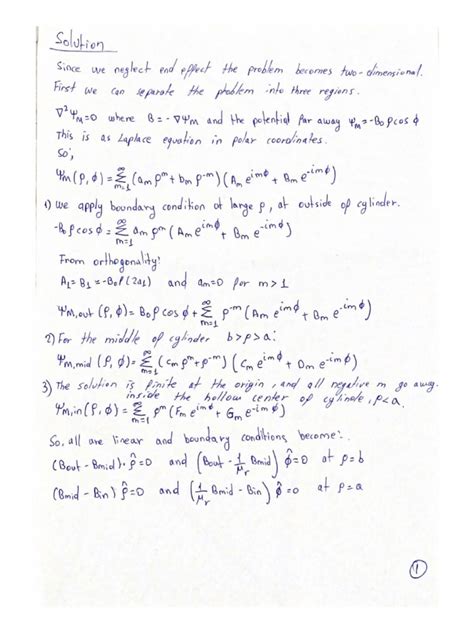 Solution
Since we neglect end effect the problem becomes two-dimensional.
First we can separate the problem into three regions.
∇²Ψ_M=0 where B=-∇Ψ_M and the potential far away Ψ_M=-B₀ρcosφ
This is as Laplace equation in polar coordinates.
So,
Ψ_M(ρ,φ)=∑_{m=1}^{∞}(a_m ρ^m+b_m ρ^{-m})(A_m e^{imφ}+B_m e^{-imφ})
1) We apply boundary condition at large ρ, at outside of cylinder.
-B₀ρcosφ=∑_{m=1}^{∞} a_m ρ^m(A_m e^{imφ}+B_m e^{-imφ})
From orthogonality:
A₁=B₁=-B₀/(2a₁) and a_m=0 for m>1
Ψ_{M,out}(ρ,φ)=B₀ρcosφ+∑_{m=1}^{∞} ρ^{-m}(A_m e^{imφ}+B_m e^{-imφ})
2) For the middle of cylinder b>ρ>a:
Ψ_{M,mid}(ρ,φ)=∑_{m=1}^{∞}(C_m ρ^m+ρ^{-m})(C_m e^{imφ}+D_m e^{-imφ})
3) The solution is finite at the origin, and all negative m go away.
inside the hollow center of cylinde, ρ<a.
Ψ_{M,in}(ρ,φ)=∑_{m=1}^{∞} ρ^m(F_m e^{imφ}+G_m e^{-imφ})
So, all are linear and boundary conditions become:
(B_out-B_mid)·ρ̂=0 and (B_out-1/μ_r B_mid)φ̂=0 at ρ=b
(B_mid-B_in)ρ̂=0 and (1/μ_r B_mid-B_in)φ̂=0 at ρ=a
1